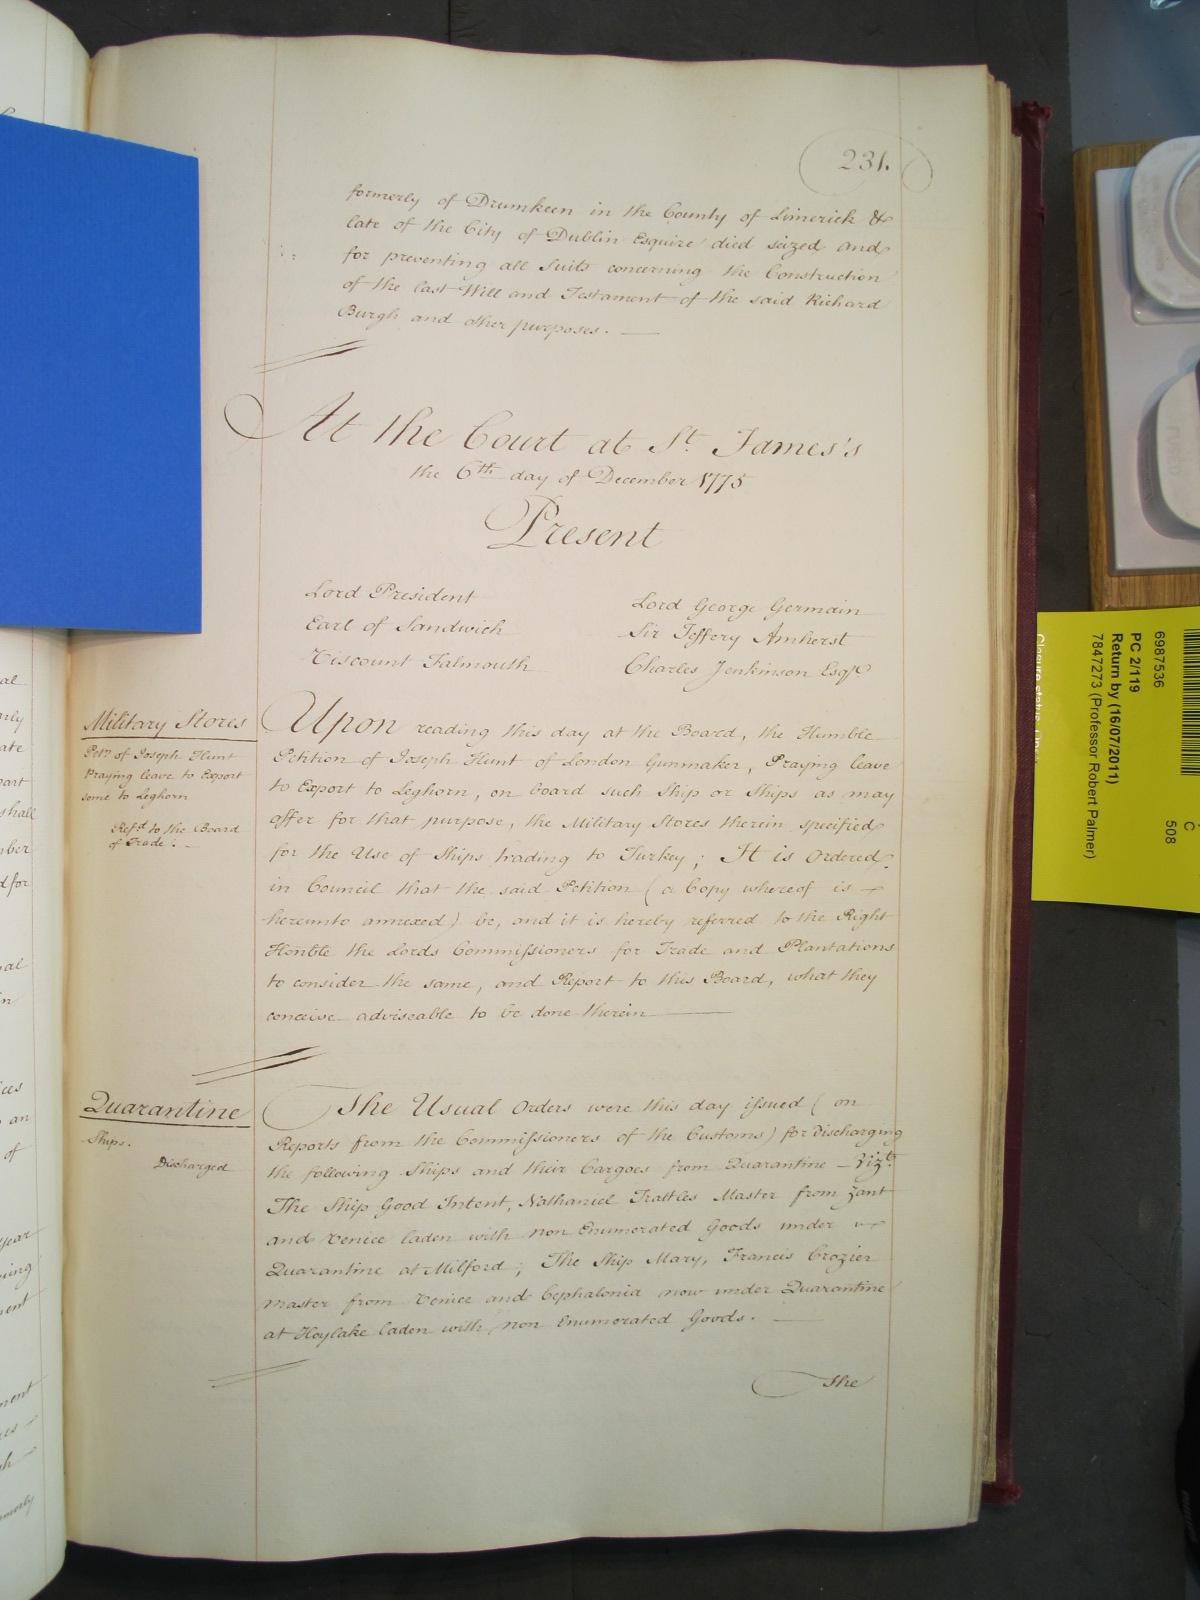 231.
formerly of Drumkeen in the County of Limerick &
late of the City of Dublin Esquire died seized and
for preventing all Suits concerning the Construction
of the last Will and Testament of the said Richard
Burgh and other purposes. —
At the Court at St. James's
the 6th day of December 1775
Present
Lord President
Earl of Sandwich
Viscount Falmouth
Lord George Germain
Sir Jeffery Amherst
Charles Jenkinson Esqr.
Military Stores
Petn. of Joseph Hunt
Praying leave to Export
some to Leghorn
Refd. to the Board
of Trade. —
Upon reading this day at the Board, the Humble
Petition of Joseph Hunt of London Gunmaker, Praying leave
to Export to Leghorn, on board such Ship or Ships as may
offer for that purpose, the Military Stores therein specified
for the Use of Ships trading to Turkey; It is Ordered
in Council that the said Petition (a Copy whereof is
hereunto annexed) be, and it is hereby referred to the Right
Honble the Lords Commissioners for Trade and Plantations
to consider the same, and Report to this Board, what they
conceive adviseable to be done therein —
Quarantine
Ships.
Discharged
The Usual Orders were this day issued (on
Reports from the Commissioners of the Customs) for Discharging
the following Ships and their Cargoes from Quarantine — Vizt.
The Ship Good Intent, Nathaniel Trattles Master from Zant
and Venice laden with non Enumerated Goods under
Quarantine at Milford; The Ship Mary, Francis Crozier
Master from Venice and Cephalonia now under Quarantine
at Hoylake laden with non Enumerated Goods. —
The
6987536
PC 2/119
Return by (16/07/2011)
7847273 (Professor Robert Palmer)
C
508
Closure status: Open